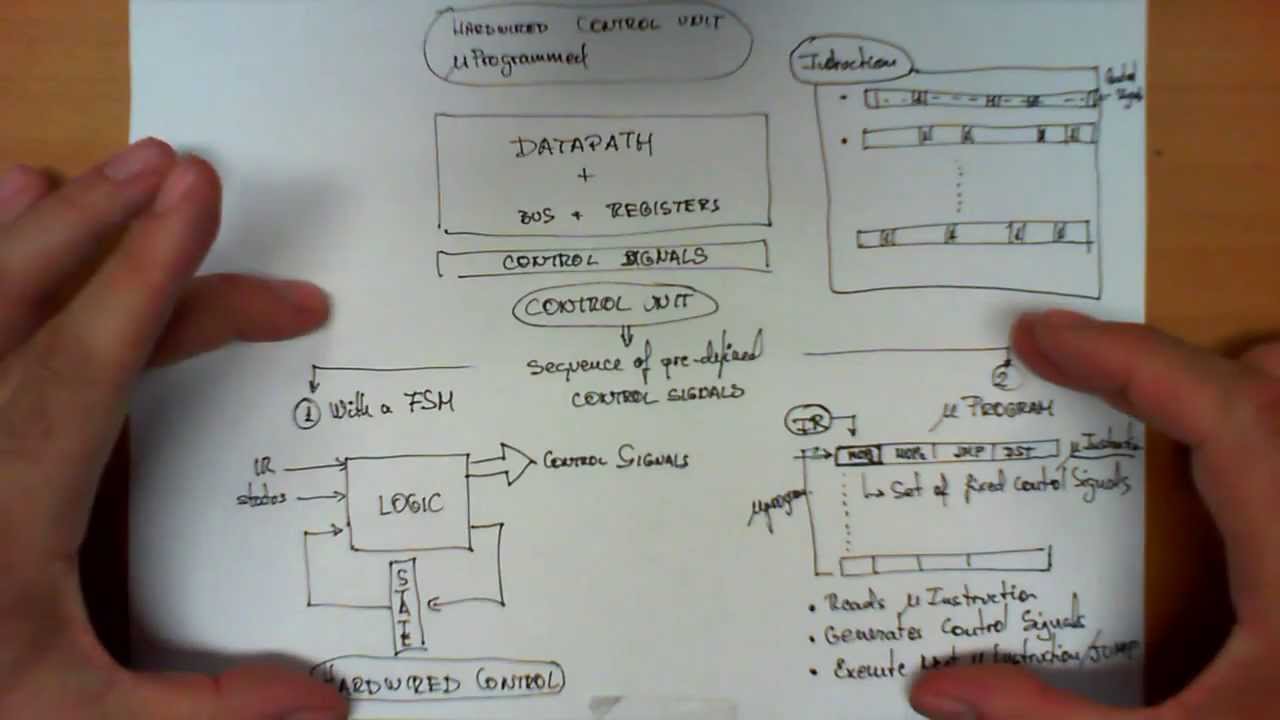 HARDWIRED CONTROL UNIT
μProgrammed
Instruction
Control
Signals
DATAPATH
+
BUS + REGISTERS
CONTROL SIGNALS
CONTROL UNIT
sequence of pre-defined
CONTROL SIGNALS
1 With a FSM
2
μ PROGRAM
IR
LOGIC
CONTROL SIGNALS
status
STATE
HARDWIRED CONTROL
IR
JMP DST
μInstruction
μprogram
Set of fixed Control Signals
• Reads μ Instruction
• Generates Control Signals
• Execute Next μ Instruction/JUMP